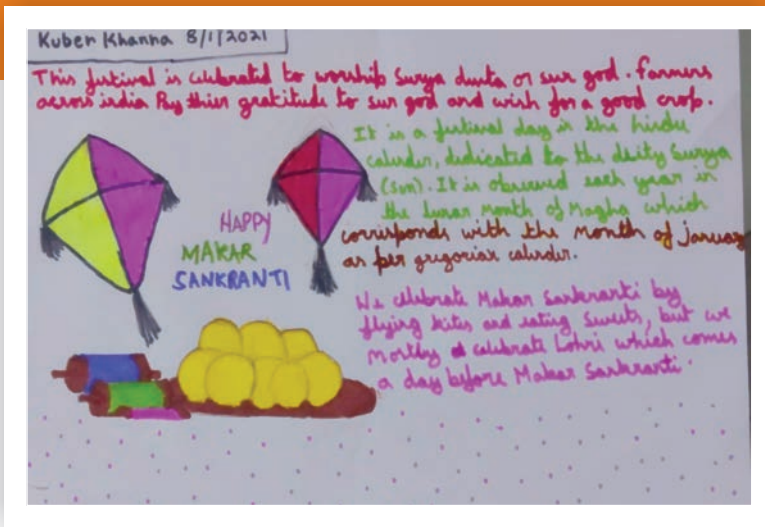 Kuber Khanna 8/1/2021
This festival is celebrated to worship Surya devta or sun god. Farmers
across india Pay thier gratitude to sun god and wish for a good crop.
It is a festival day in the hindu
calender, dedicated to the deity Surya
(sun). It is observed each year in
the lunar month of Magha which
corrisponds with the month of january
as per gregorian calender.
HAPPY
MAKAR
SANKRANTI
We celebrate Makar Sankranti by
flying kites and eating sweets, but we
mostly celebrate Lohri which comes
a day before Makar Sankranti.